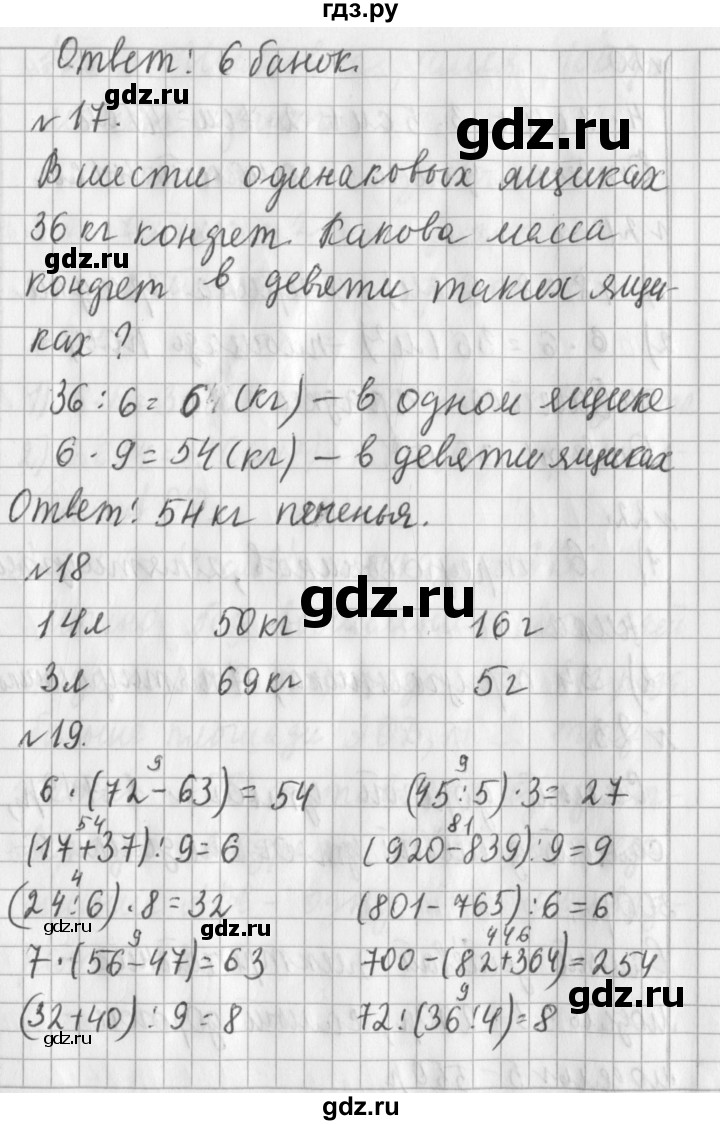 гдз.ру
Ответ: 6 банок.
gdz.ru
gdz.ru
№17.
В шести одинаковых ящиках
36 кг конфет. Какова масса
gdz.ru
конфет в девяти таких ящи-
ках?
36 : 6 = 6 (кг) – в одном ящике
gdz.ru
6 · 9 = 54 (кг) – в девяти ящиках
Ответ: 54 кг печенья.
№18
gdz.ru
14л 50кг 16г
3л 69кг 5г
№19.
9 9
6 · (72 – 63) = 54 (45:5) · 3 = 27
54 81
(17+37) : 9 = 6 (920–839) : 9 = 9
4
(24:6) · 8 = 32 (801–765) : 6 = 6
gdz.ru gdz.ru
9 446
7 · (56–47) = 63 700 – (82+364) = 254
gdz.ru
9
(32+40) : 9 = 8 72 : (36:4) = 8
gdz.ru